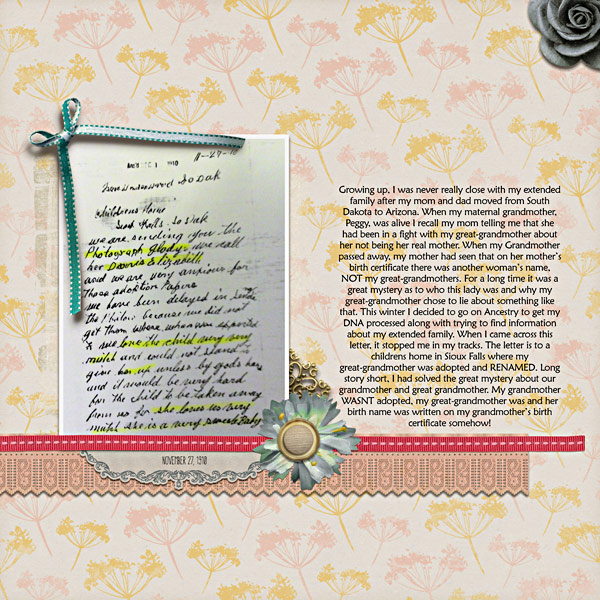 11-27-10
So Dak
Childrens Home
Sioux Falls. So Dak
we are sending you the
Photograph Gladys we call
her Dorris Elizabeth
and we are very anxious for
those adoption Papers
we have been delayed in
the because we did not
get them where when we expected
& we love the child very very
much and could not stand to
give her up unless by gods hand
and it would be very hard
for the child to be taken away
from us for she loves us very
much she is a very sweet baby
NOVEMBER 27, 1910
Growing up, I was never really close with my extended
family after my mom and dad moved from South
Dakota to Arizona. When my maternal grandmother,
Peggy, was alive I recall my mom telling me that she
had been in a fight with my great-grandmother about
her not being her real mother. When my Grandmother
passed away, my mother had seen that on her mother's
birth certificate there was another woman's name,
NOT my great-grandmothers. For a long time it was a
great mystery as to who this lady was and why my
great-grandmother chose to lie about something like
that. This winter I decided to go on Ancestry to get my
DNA processed along with trying to find information
about my extended family. When I came across this
letter, it stopped me in my tracks. The letter is to a
childrens home in Sioux Falls where my
great-grandmother was adopted and RENAMED. Long
story short, I had solved the great mystery about our
grandmother and great grandmother. My grandmother
WASNT adopted, my great-grandmother was and her
birth name was written on my grandmother's birth
certificate somehow!